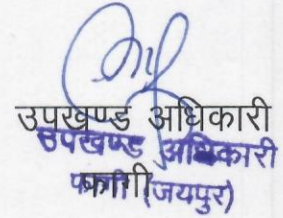 उपखण्ड अधिकारी
उपखण्ड अधिकारी
फागी
फागी (जयपुर)